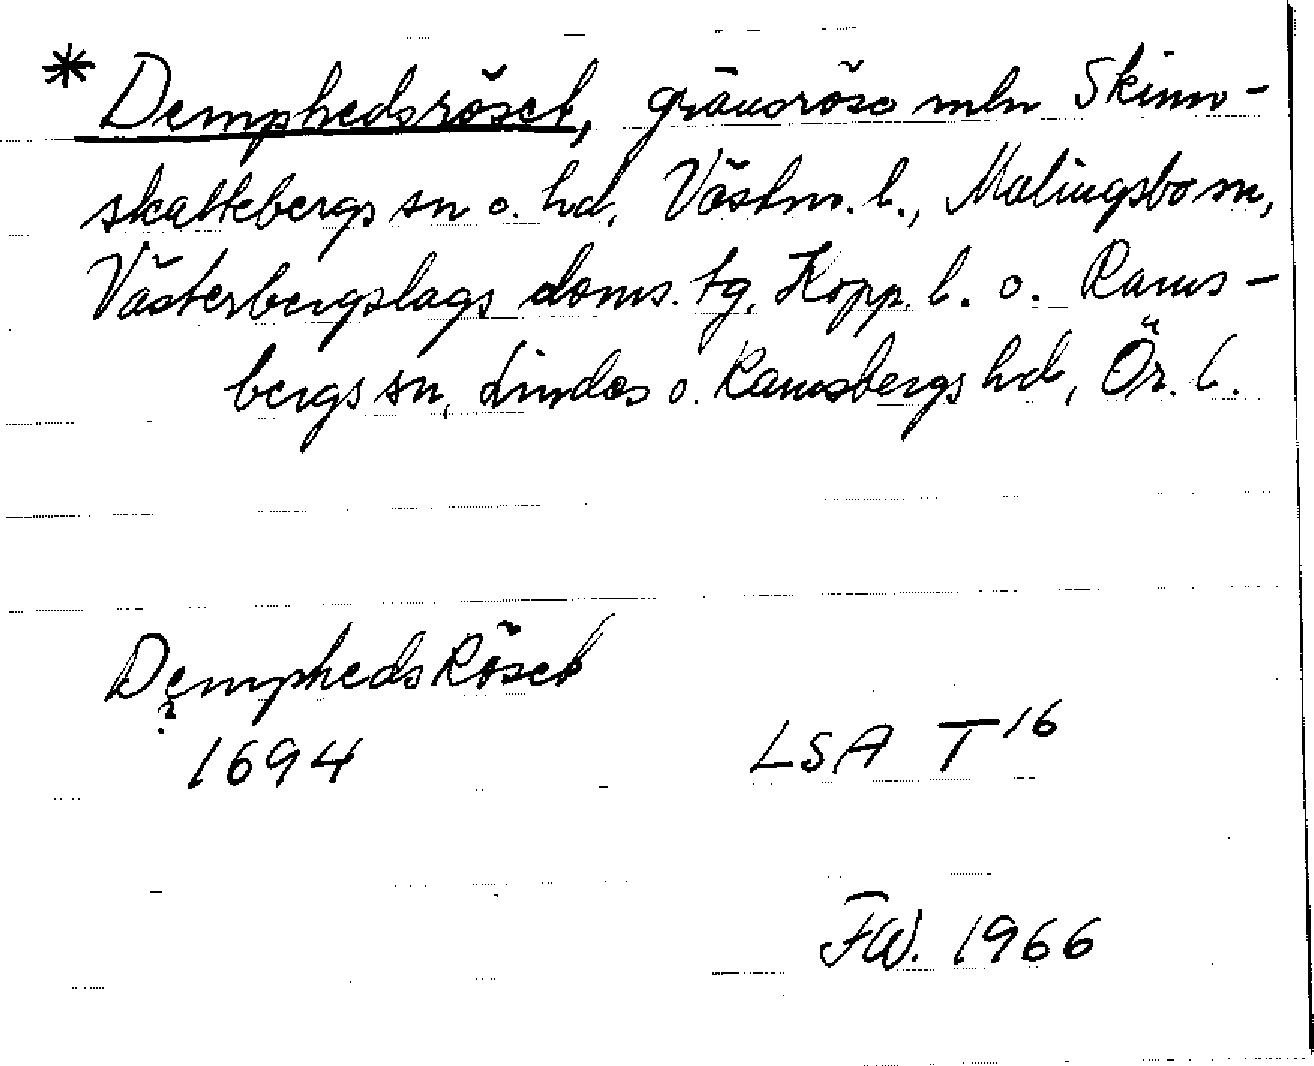 * Demphedsröset, gränsröse mln Skinn-
skattebergs sn o. hd, Västm. l., Malingsbo sn,
Västerbergslags doms. tg, Kopp. l. o. Rams-
bergs sn, Lindes o. Ramsbergs hd, Ör. l.
Dempheds Röset
?
1694 LSA T 16
FW. 1966